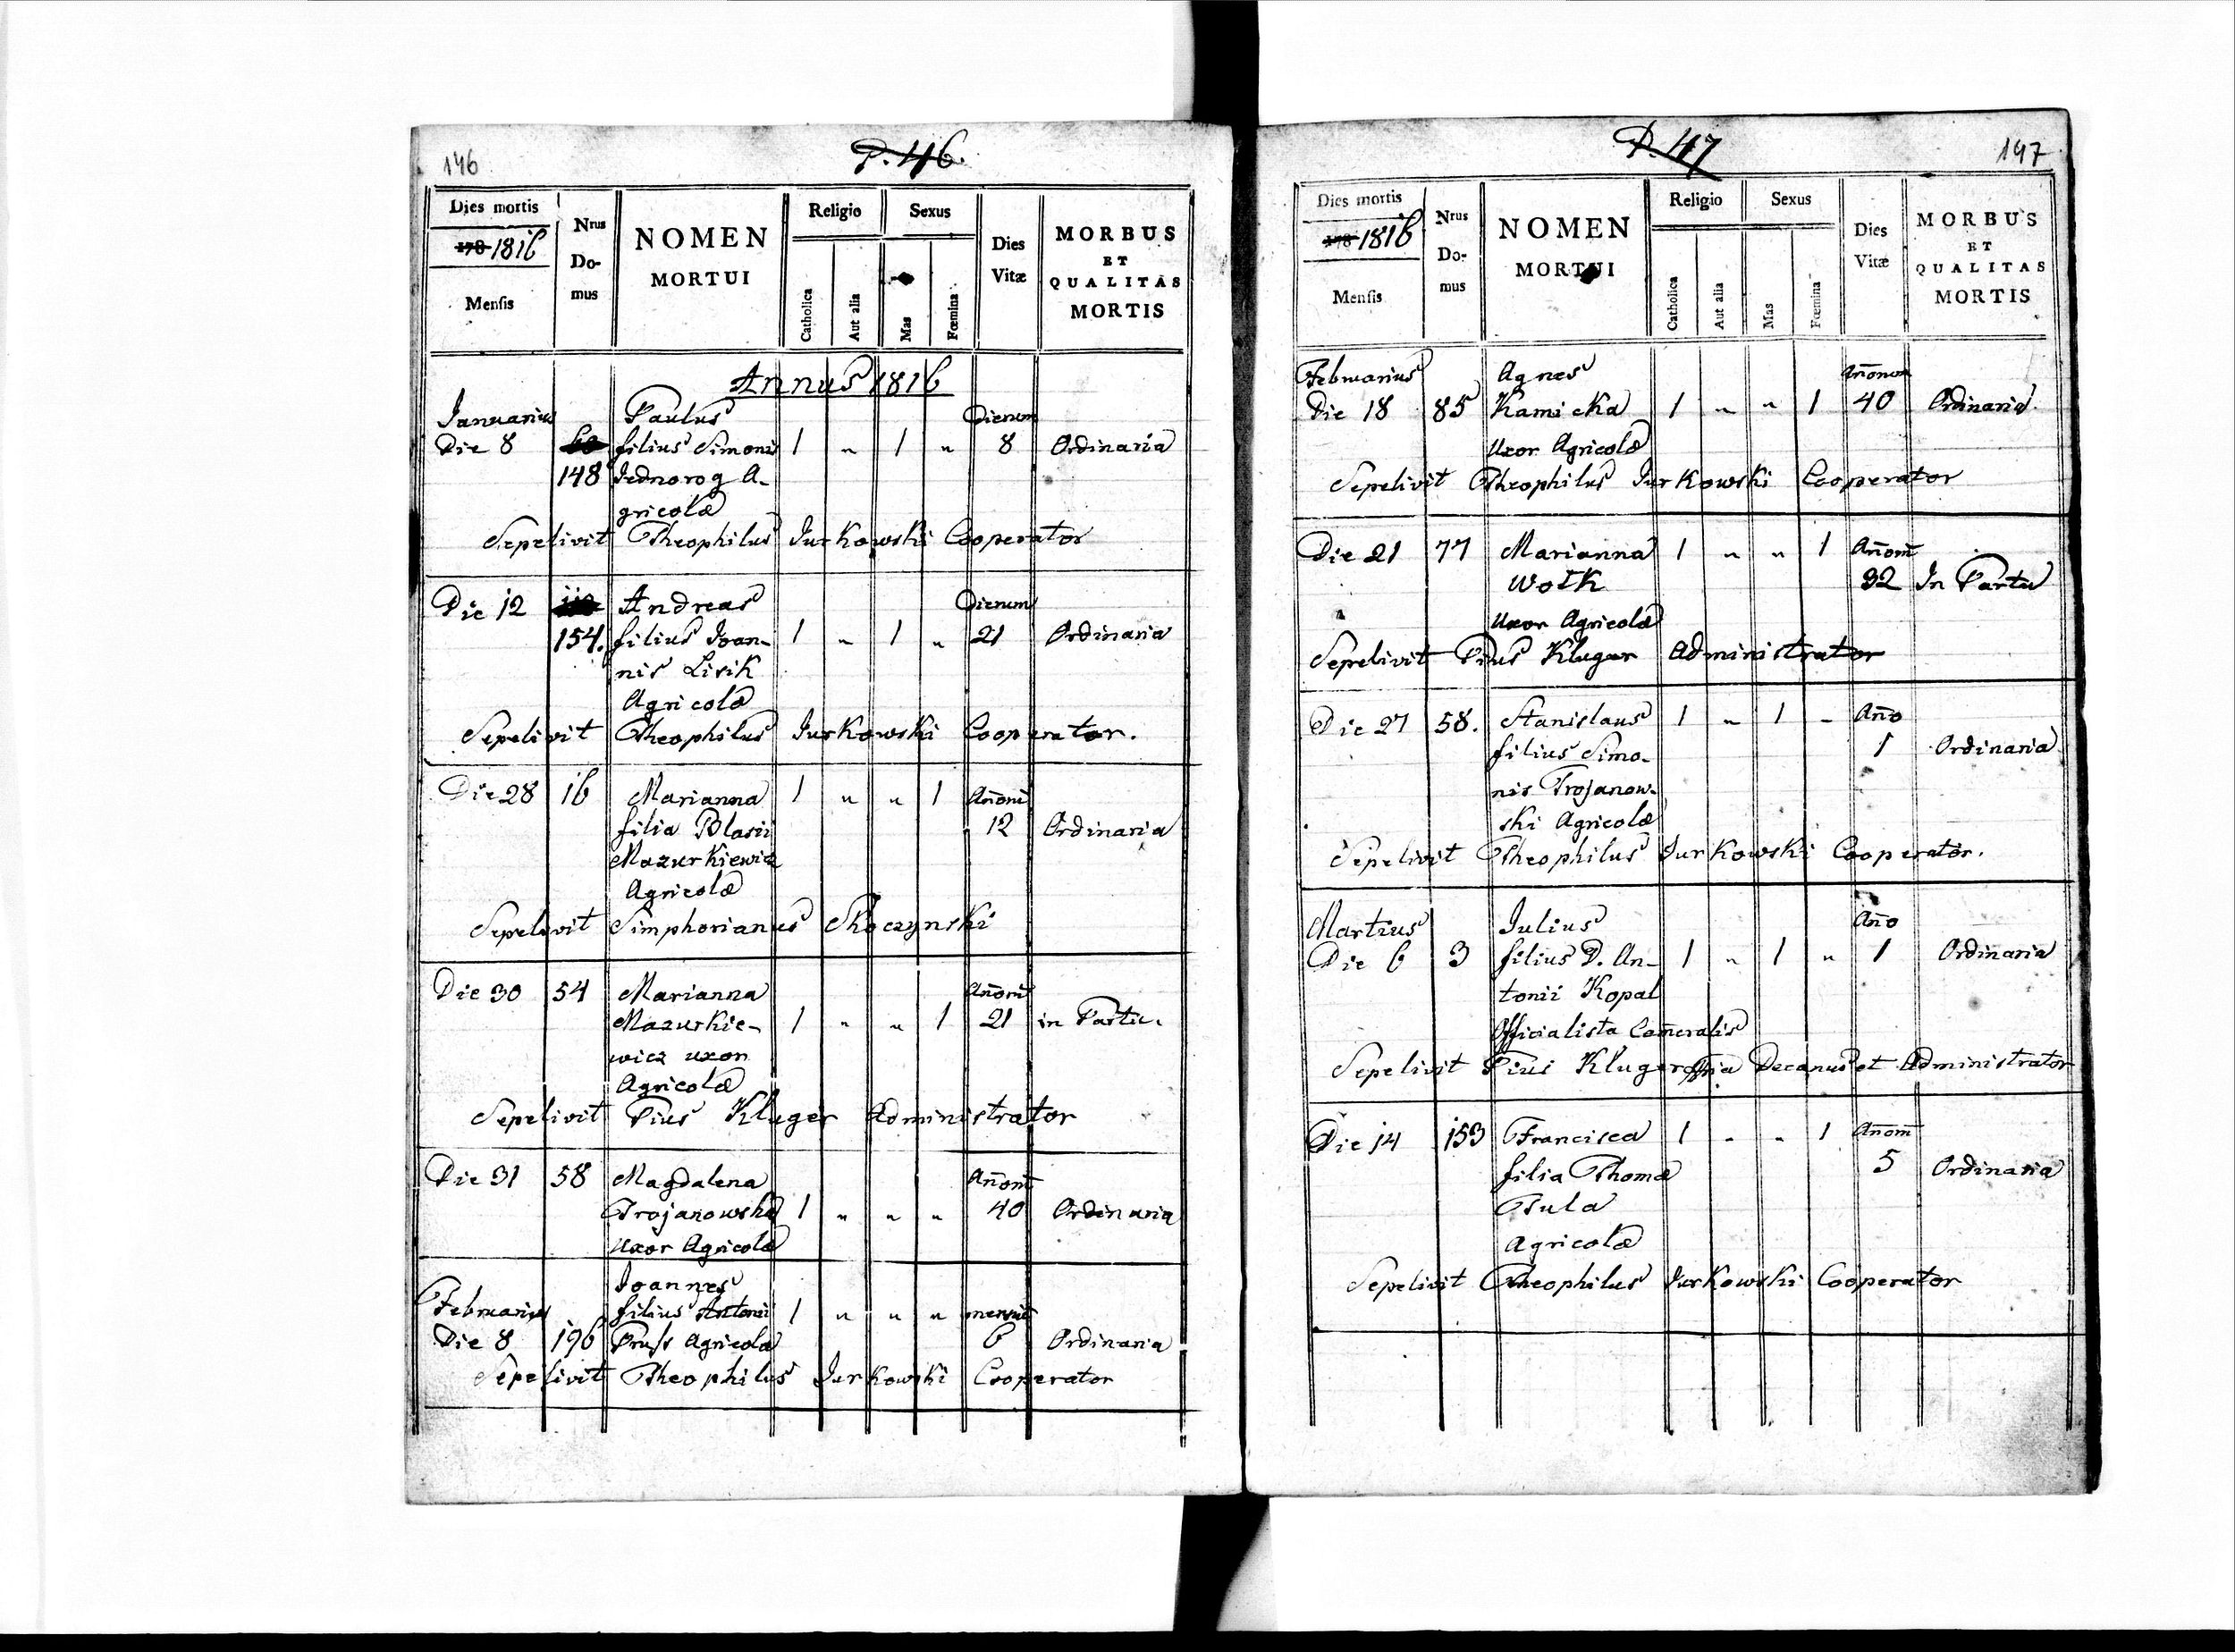 146
P. 46.
Dies mortis
178 1816
Mensis
Nrus
Do-
mus
NOMEN
MORTUI
Religio
Catholica
Aut alia
Sexus
Mas
Fœmina
Dies
Vitæ
MORBUS
ET
QUALITAS
MORTIS
Annus 1816
Januarius Paulus Dienum
Die 8 filius Simonis 1 " 1 " 8 Ordinaria
148 Jednorog A-
gricolæ
Sepelivit Theophilus Jurkowski Cooperator
Die 12 Andreas Dierum
154. filius Joan- 1 " 1 " 21 Ordinaria
nis Lisik
Agricolæ
Sepelivit Theophilus Jurkowski Cooperator.
Die 28 16 Marianna 1 " " 1 Añoni
filia Blasii 12 Ordinaria
Mazurkiewicz
Agricolæ
Sepelivit Simphorianus Skoczynski
Die 30 54 Marianna Añoni
Mazurkie- 1 " " 1 21 in Partu.
wicz uxor
Agricolæ
Sepelivit Pius Kluger Administrator
Die 31 58 Magdalena Añom
Trojanowska 1 " " " 40 Ordinaria
Uxor Agricolæ
Joannes
Februarius filius Antonii 1 " " " mensiũ
Die 8 196 Pruss Agricolæ 6 Ordinaria
Sepelivit Theophilus Jurkowski Cooperator
147
P. 47
Dies mortis
178 1816
Mensis
Nrus
Do-
mus
NOMEN
MORTUI
Religio
Catholica
Aut alia
Sexus
Mas
Fœmina
Dies
Vitæ
MORBUS
ET
QUALITAS
MORTIS
Februarius Agnes Añonom
Die 18 85 Kamicka 1 " " 1 40 Ordinaria.
Uxor Agricolæ
Sepelivit Theophilus Jurkowski Cooperator
Die 21 77 Marianna 1 " " 1 Añom
Wołk 32 In Partu
Uxor Agricolæ
Sepelivit Pius Kluger Administrator
Die 27 58. Stanislaus 1 " 1 - Año
filius Simo- 1 Ordinaria
nis Trojanow-
ski Agricolæ
Sepelivit Theophilus Jurkowski Cooperator.
Martius Julius Año
Die 6 3 filius D. An- 1 " 1 " 1 Ordinaria
tonii Kopal
Officialista Cameralis
Sepelivit Pius Kluger Decanus et Administrator
Die 14 153 Francisca 1 " " 1 Añom
filia Thomæ 5 Ordinaria
Tula
Agricolæ
Sepelivit Theophilus Jurkowski Cooperator